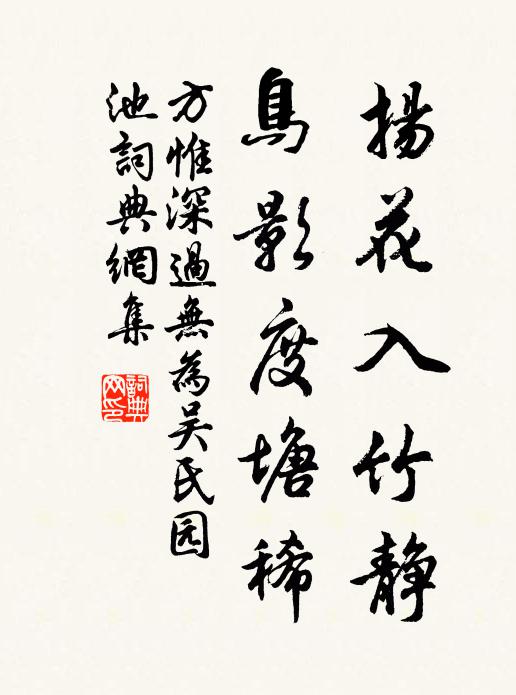 揚花入竹靜
鳥影度塘稀
方惟深過無為吴氏园
池詞典網集
詞典
网印